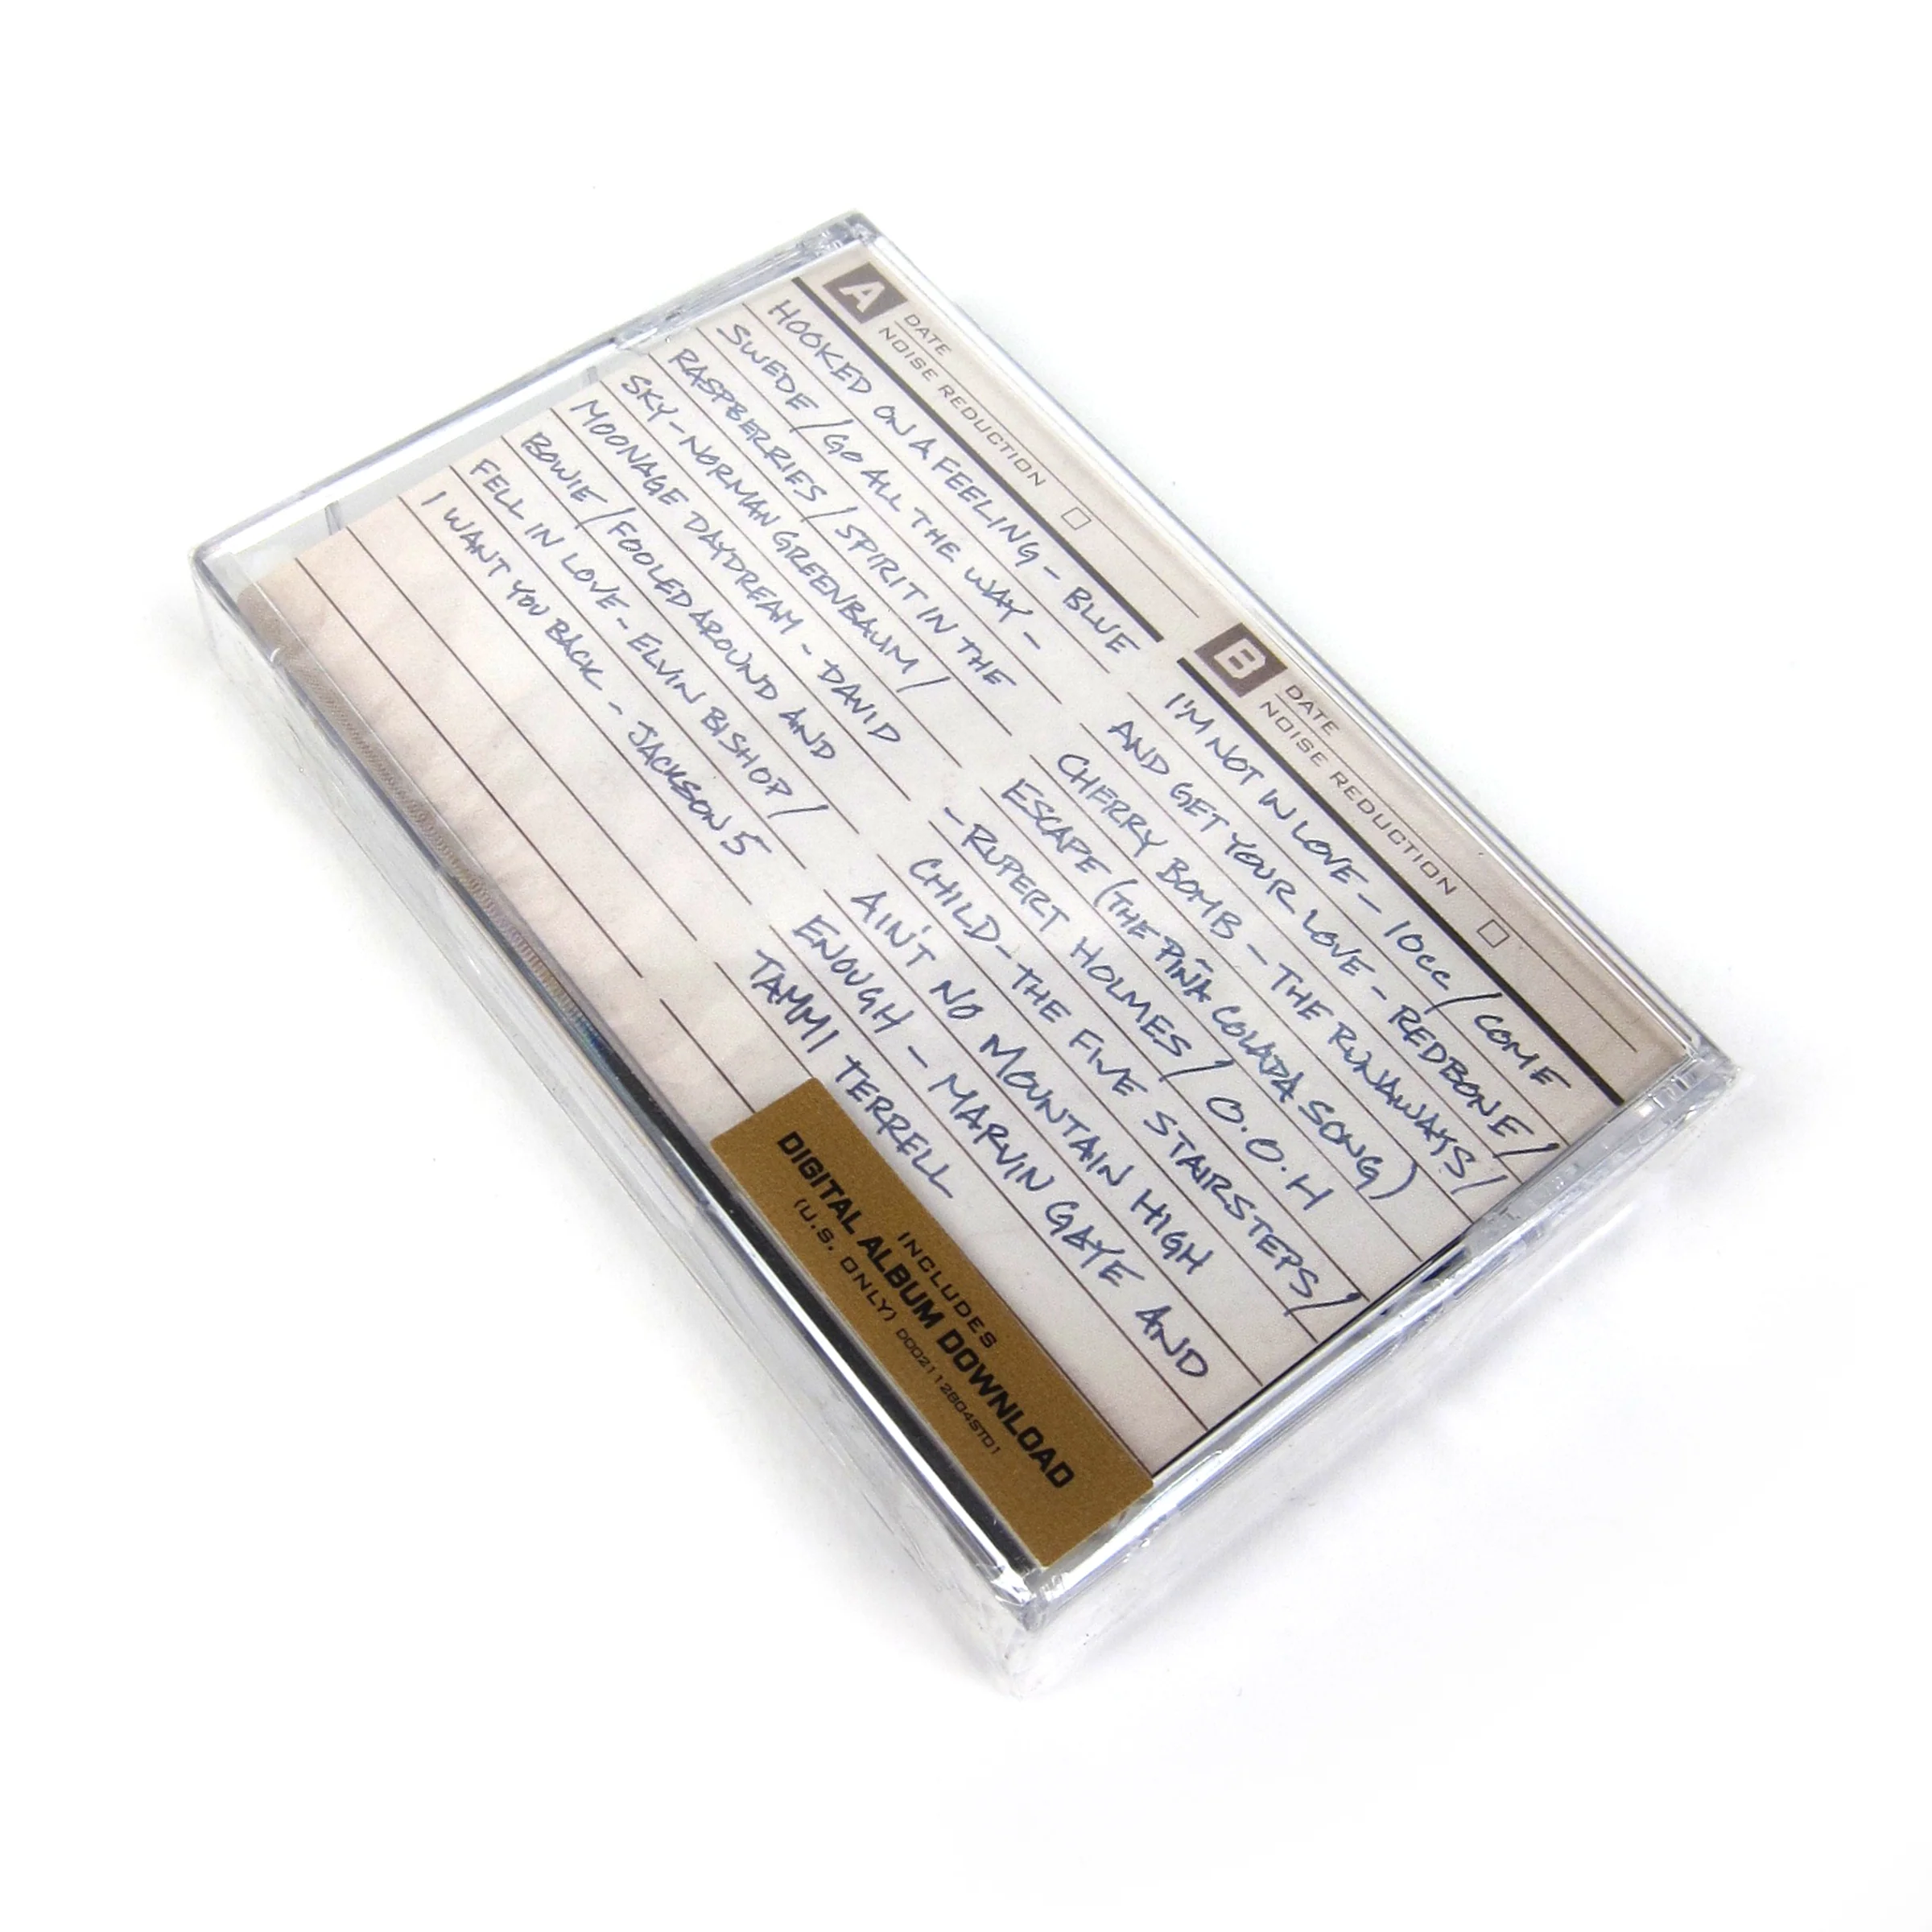 A
DATE
NOISE REDUCTION
HOOKED ON A FEELING - BLUE
SWEDE / GO ALL THE WAY -
RASPBERRIES / SPIRIT IN THE
SKY - NORMAN GREENBAUM /
MOONAGE DAYDREAM - DAVID
BOWIE / FOOLED AROUND AND
FELL IN LOVE - ELVIN BISHOP /
I WANT YOU BACK - JACKSON 5
B
DATE
NOISE REDUCTION
I'M NOT IN LOVE - 10cc / COME
AND GET YOUR LOVE - REDBONE /
CHERRY BOMB - THE RUNAWAYS /
ESCAPE (THE PIÑA COLADA SONG)
- RUPERT HOLMES / O.O.H
CHILD - THE FIVE STAIRSTEPS /
AIN'T NO MOUNTAIN HIGH
ENOUGH - MARVIN GAYE AND
TAMMI TERRELL
INCLUDES
DIGITAL ALBUM DOWNLOAD
(U.S. ONLY) D002112804ST01